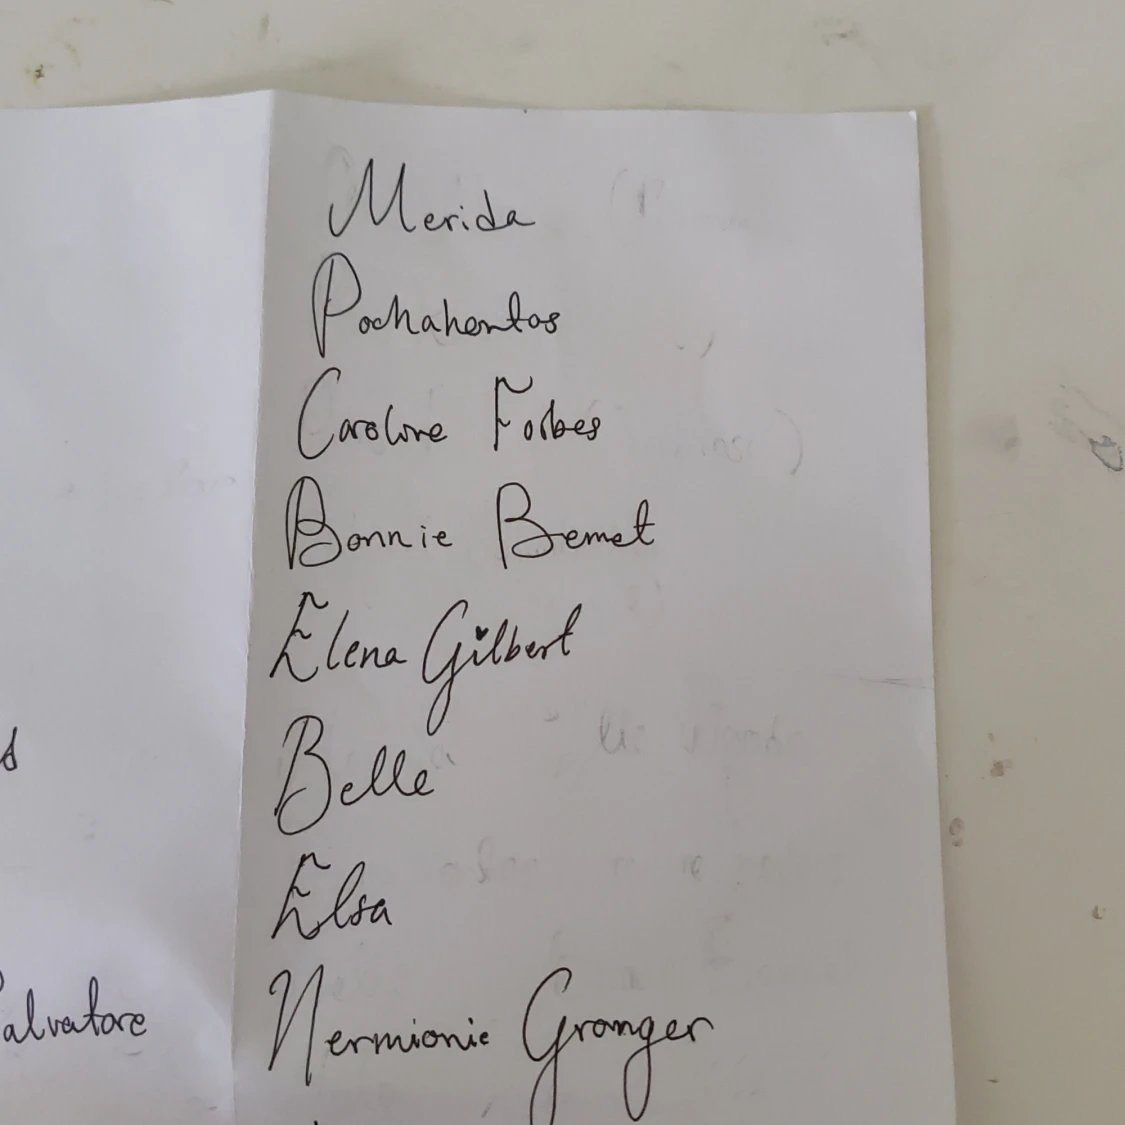 Merida
Pochahontas
Caroline Forbes
Bonnie Bennet
Elena Gilbert
Belle
Elsa
Salvatore
Hermionie Granger